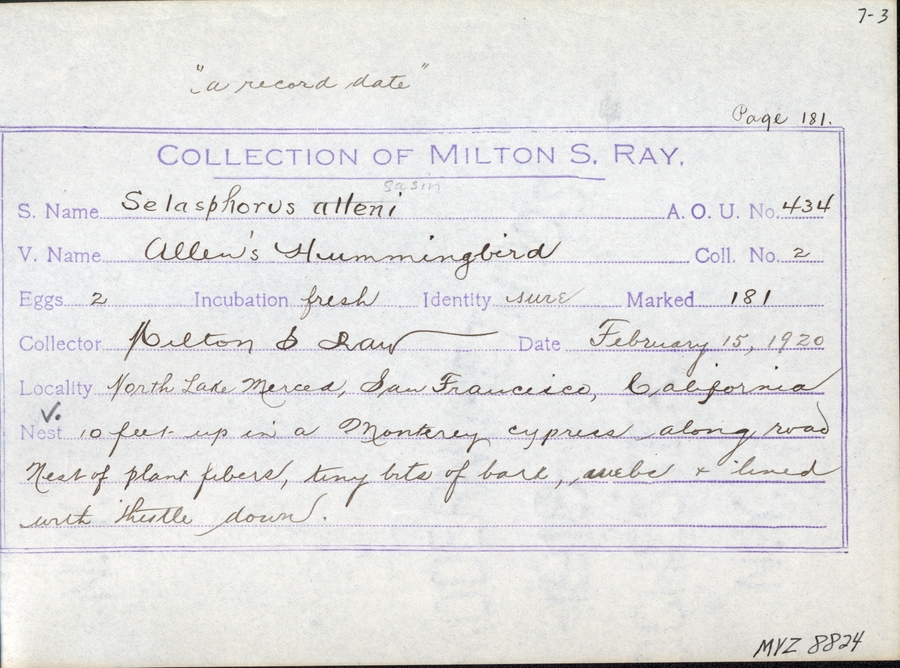 7-3
"a record date"
Page 181.
COLLECTION OF MILTON S. RAY.
sasin
S. Name Selasphorus alleni A. O. U. No. 434
V. Name Allen's Hummingbird Coll. No. 2
Eggs 2 Incubation fresh Identity sure Marked 181
Collector Milton S Ray Date February 15, 1920
Locality North Lake Merced, San Francisco, California
V.
Nest 10 feet up in a Monterey cypress along road
Nest of plant fibers, tiny bits of bark, webs + lined
with thistle down.
MVZ 8824